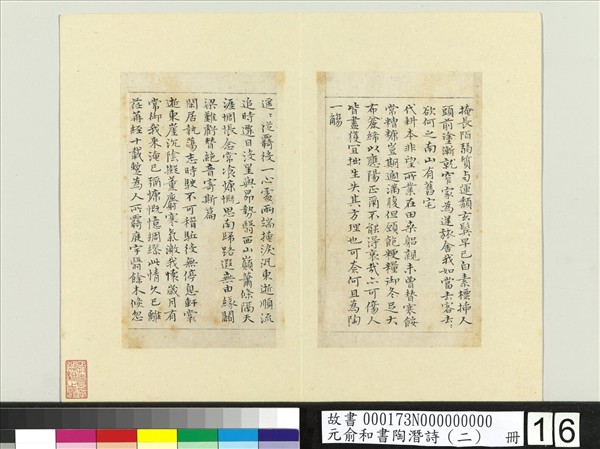 掩長陌弱質与運頹玄鬢早已白素標揷人
頭前塗漸就窄家為逆旅舍我如當去客去〻
欲何之南山有舊宅
代耕本非望所業在田桑躬親未曾替寒餒
常糟糠豈期過滿腹但願飽粳糧御冬足大
布麤絺以應陽正爾不能得哀哉亦可傷人
皆盡獲宜拙生失其方理也可奈何且為陶
一觴
遙〻從羇役一心處兩端掩淚汎東逝順流
追時遷日沒星與昴勢翳西山巔蕭條隔天
涯惆悵念常飡慷慨思南歸路遐無由緣關
梁難虧替絕音寄斯篇
閑居執蕩志時駛不可稽驅役無停息軒裳
逝東崖沉陰擬薰麝寒氣激我懷歲月有
常御我來淹已彌慷慨憶綢繆此情久已離
荏苒經十載蹔為人所羈庭宇翳餘木倐忽
故書 000173N000000000
元俞和書陶潛詩(二) 冊 16